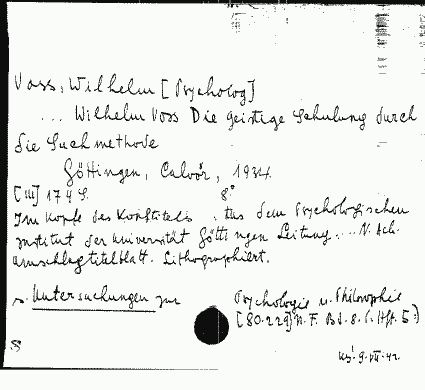 Voss, Wilhelm [Psycholog]
... Wilhelm Voss Die geistige Schulung durch
die Suchmethode
Göttingen, Calvör, 1934
[III] 174 S. 8°
Im Kopfe des Kopftitels: Aus dem Psychologischen
Institut der Universität Göttingen Leitung: ... N. Ach.
Umschlagtitelblatt. Lithographiert.
s. Untersuchungen zur Psychologie u. Philosophie
[80.229] N. F. Bd. 8. Hft. 5.)
9. VII. 42.